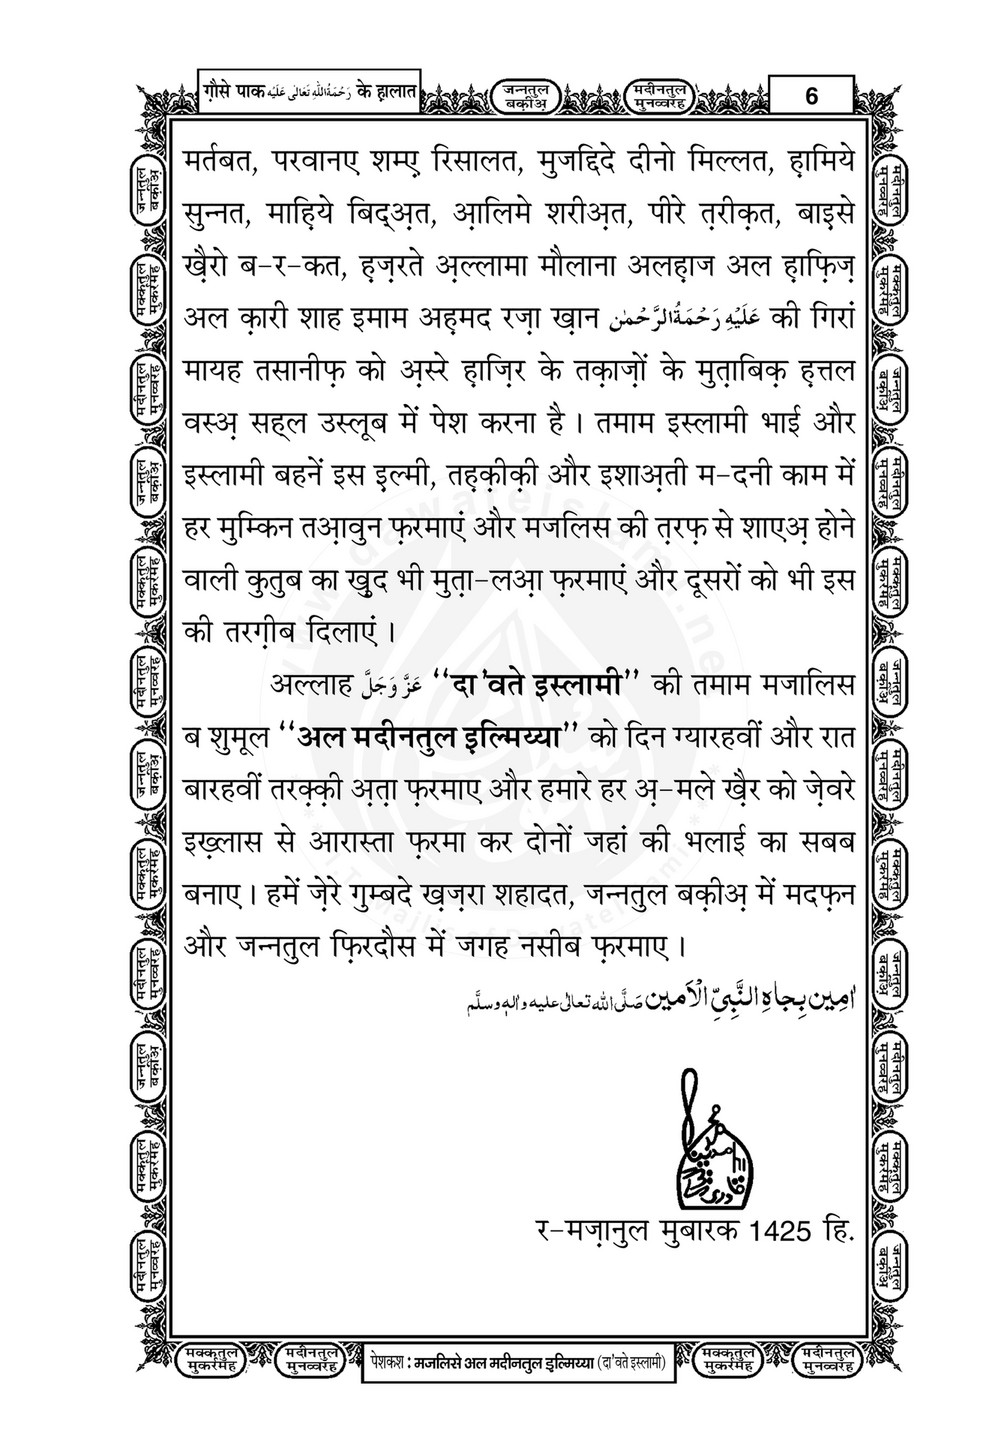 ग़ौसे पाक رَحْمَةُ اللهِ تَعَالٰی عَلَيْه के ह़ालात
जन्नतुल बक़ीअ़
मदीनतुल मुनव्वरह
6
मर्तबत, परवानए शम्ए़ रिसालत, मुजद्दिदे दीनो मिल्लत, ह़ामिये
सुन्नत, माह़िये बिद्अ़त, आ़लिमे शरीअ़त, पीरे त़रीक़त, बाइ़से
ख़ैरो ब-र-कत, ह़ज़रते अ़ल्लामा मौलाना अलह़ाज अल ह़ाफ़िज़
अल क़ारी शाह इमाम अह़मद रज़ा ख़ान عَلَيْهِ رَحْمَةُ الرَّحْمٰن की गिरां
मायह तसानीफ़ को अ़स्रे ह़ाज़िर के तक़ाज़ों के मुत़ाबिक़ ह़त्तल
वस्अ़ सह्ल उस्लूब में पेश करना है । तमाम इस्लामी भाई और
इस्लामी बहनें इस इ़ल्मी, तह़क़ीक़ी और इशाअ़ती म-दनी काम में
हर मुम्किन तआ़वुन फ़रमाएं और मजलिस की त़रफ़ से शाएअ़ होने
वाली कुतुब का ख़ुद भी मुत़ा-लआ़ फ़रमाएं और दूसरों को भी इस
की तरग़ीब दिलाएं ।
अल्लाह عَزَّ وَجَلَّ “दा'वते इस्लामी” की तमाम मजालिस
ब शुमूल “अल मदीनतुल इ़ल्मिय्या” को दिन ग्यारहवीं और रात
बारहवीं तरक़्क़ी अ़त़ा फ़रमाए और हमारे हर अ़-मले ख़ैर को ज़ेवरे
इख़्लास से आरास्ता फ़रमा कर दोनों जहां की भलाई का सबब
बनाए । हमें ज़ेरे गुम्बदे ख़ज़रा शहादत, जन्नतुल बक़ीअ़ में मदफ़न
और जन्नतुल फ़िरदौस में जगह नसीब फ़रमाए ।
اٰمِين بِجاهِ النَّبِيِّ الْاَمين صَلَّى الله تعالٰى عليه واٰلهٖ وسلَّم
र-मज़ानुल मुबारक 1425 हि.
मक्कतुल मुकर्रमह
मदीनतुल मुनव्वरह
पेशकश : मजलिसे अल मदीनतुल इ़ल्मिय्या (दा'वते इस्लामी)
मक्कतुल मुकर्रमह
मदीनतुल मुनव्वरह